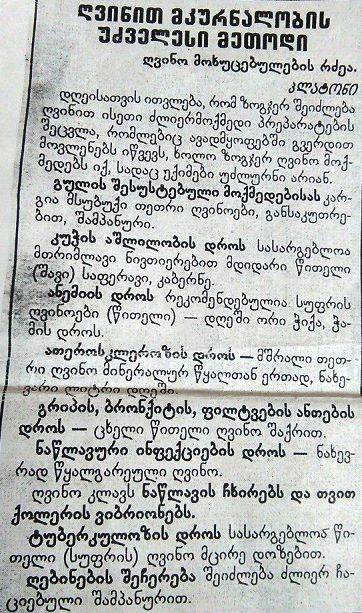 ღვინით მკურნალობის
უძველესი მეთოდი
ღვინო მოხუცებულების რძეა.
პლატონი
დღეისათვის ითვლება, რომ ზოგჯერ შეიძლება
ღვინით ისეთი ძლიერმოქმედი პრეპარატების
შეცვლა, რომლებიც ავადმყოფებში გვერდით
მოვლენებს იწვევს, ხოლო ზოგჯერ ღვინო მოქ-
მედებს იქ, სადაც ექიმები უძლურნი არიან.
გულის შესუსტებული მოქმედებისას კარ-
გია მსუბუქი თეთრი ღვინოები, განსაკუთრე-
ბით, შამპანური.
კუჭის აშლილობის დროს სასარგებლოა
მთრიმლავი ნივთიერებით მდიდარი წითელი
(შავი) საფერავი, კაბერნე.
ანემიის დროს რეკომენდებულია სუფრის
ღვინოები (წითელი) — დღეში ორი ჭიქა, ჭა-
მის დროს.
ათეროსკლეროზის დროს — მშრალი თეთ-
რი ღვინო მინერალურ წყალთან ერთად, ნახე-
ვარი ლიტრი დღეში.
გრიპის, ბრონქიტის, ფილტვების ანთების
დროს — ცხელი წითელი ღვინო შაქრით.
ნაწლავური ინფექციების დროს — ნახევ-
რად წყალგარეული ღვინო.
ღვინო კლავს ნაწლავის ჩხირებს და თვით
ქოლერის ვიბრიონებს.
ტუბერკულოზის დროს სასარგებლოა წი-
თელი (სუფრის) ღვინო მცირე დოზებით.
ღებინების შეჩერება შეიძლება ძლიერ ჩა-
ციებული შამპანურით.